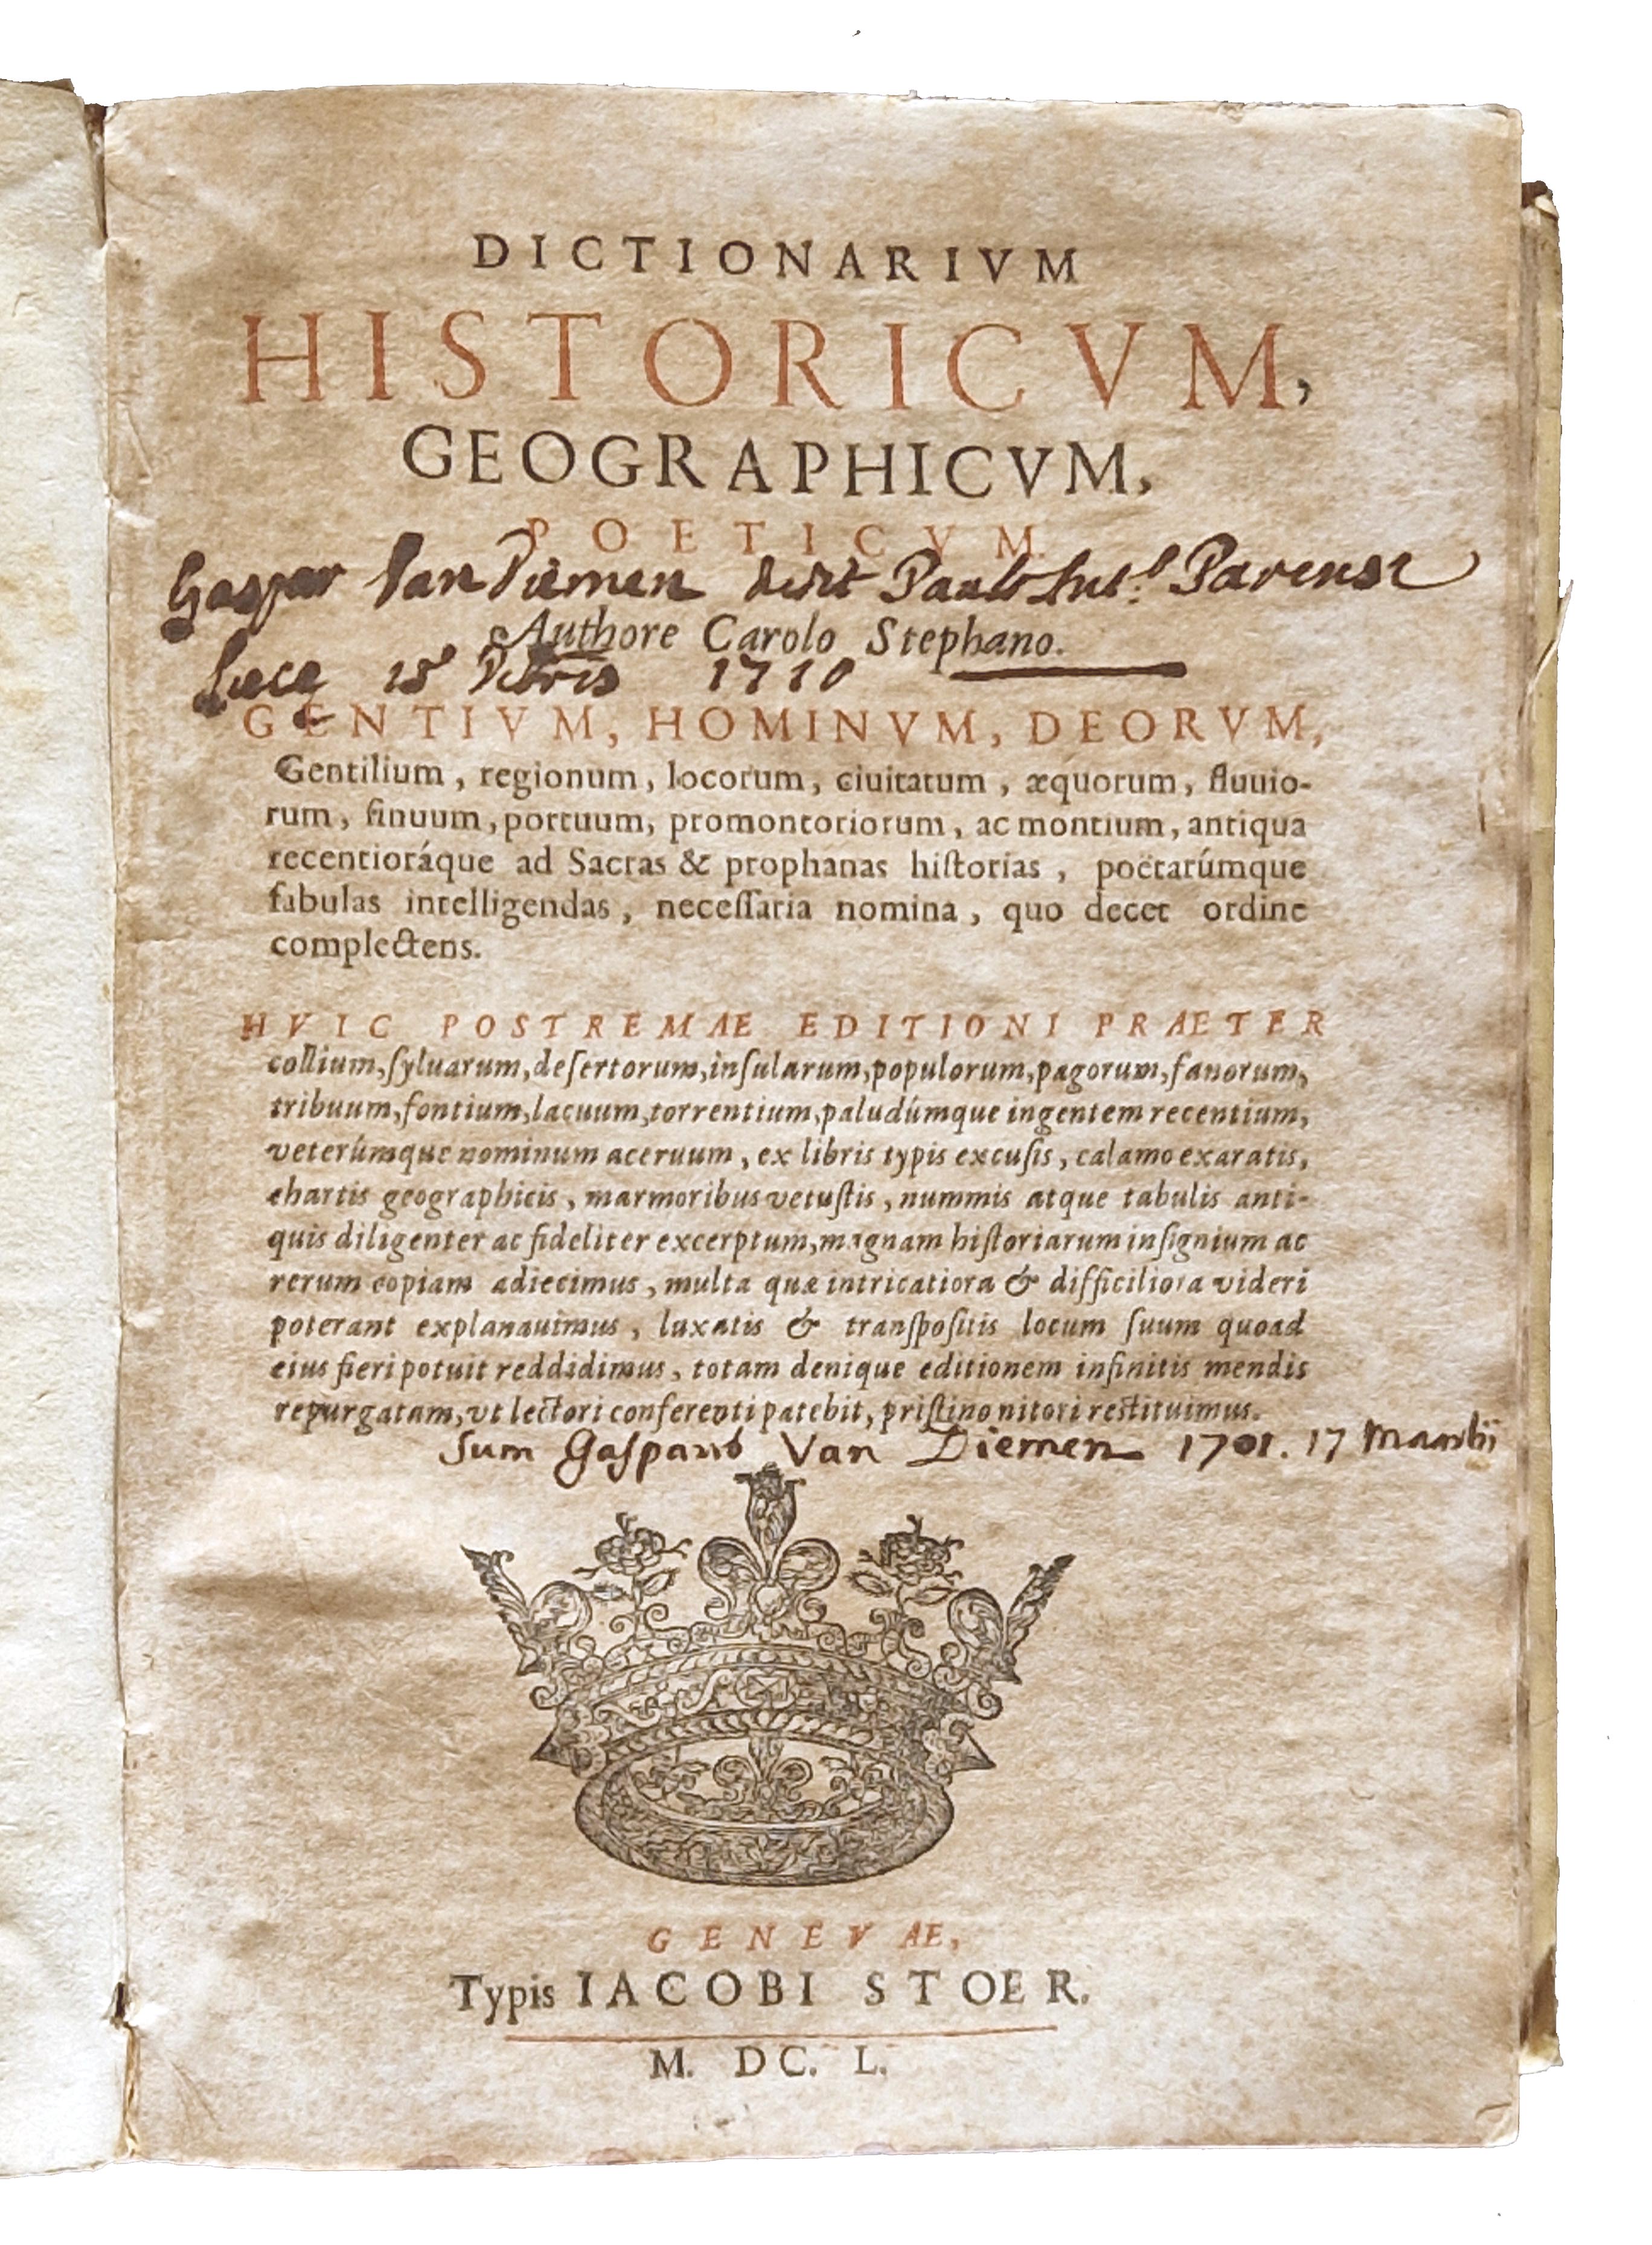 DICTIONARIVM
HISTORICVM,
GEOGRAPHICVM,
POETICVM.
Gaspar Van Diemen dedit
Authore Carolo Stephano.
15 1710
GENTIVM, HOMINVM, DEORVM,
Gentilium, regionum, locorum, ciuitatum, æquorum, fluuio-
rum, ſinuum, portuum, promontoriorum, ac montium, antiqua
recentioráque ad Sacras & prophanas hiſtorias, poëtarúmque
fabulas intelligendas, neceſſaria nomina, quo decet ordine
complectens.
HVIC POSTREMÆ EDITIONI PRÆTER
collium, ſyluarum, deſertorum, inſularum, populorum, pagorum, fanorum,
tribuum, fontium, lacuum, torrentium, paludúmque ingentem recentium,
veterúmque nominum aceruum, ex libris typis excuſis, calamo exaratis,
chartis geographicis, marmoribus vetuſtis, nummis atque tabulis anti-
quis diligenter ac fideliter excerptum, magnam hiſtoriarum inſignium ac
rerum copiam adiecimus, multa quæ intricatiora & difficiliora videri
poterant explanauimus, luxatis & tranſpoſitis locum ſuum quoad
eius fieri potuit reddidimus, totam denique editionem infinitis mendis
repurgatam, vt lectori conferenti patebit, priſtino nitori reſtituimus.
Sum Gaſparis Van Diemen 1701. 17 Maartij
GENEVÆ,
Typis IACOBI STOER.
M. DC. L.